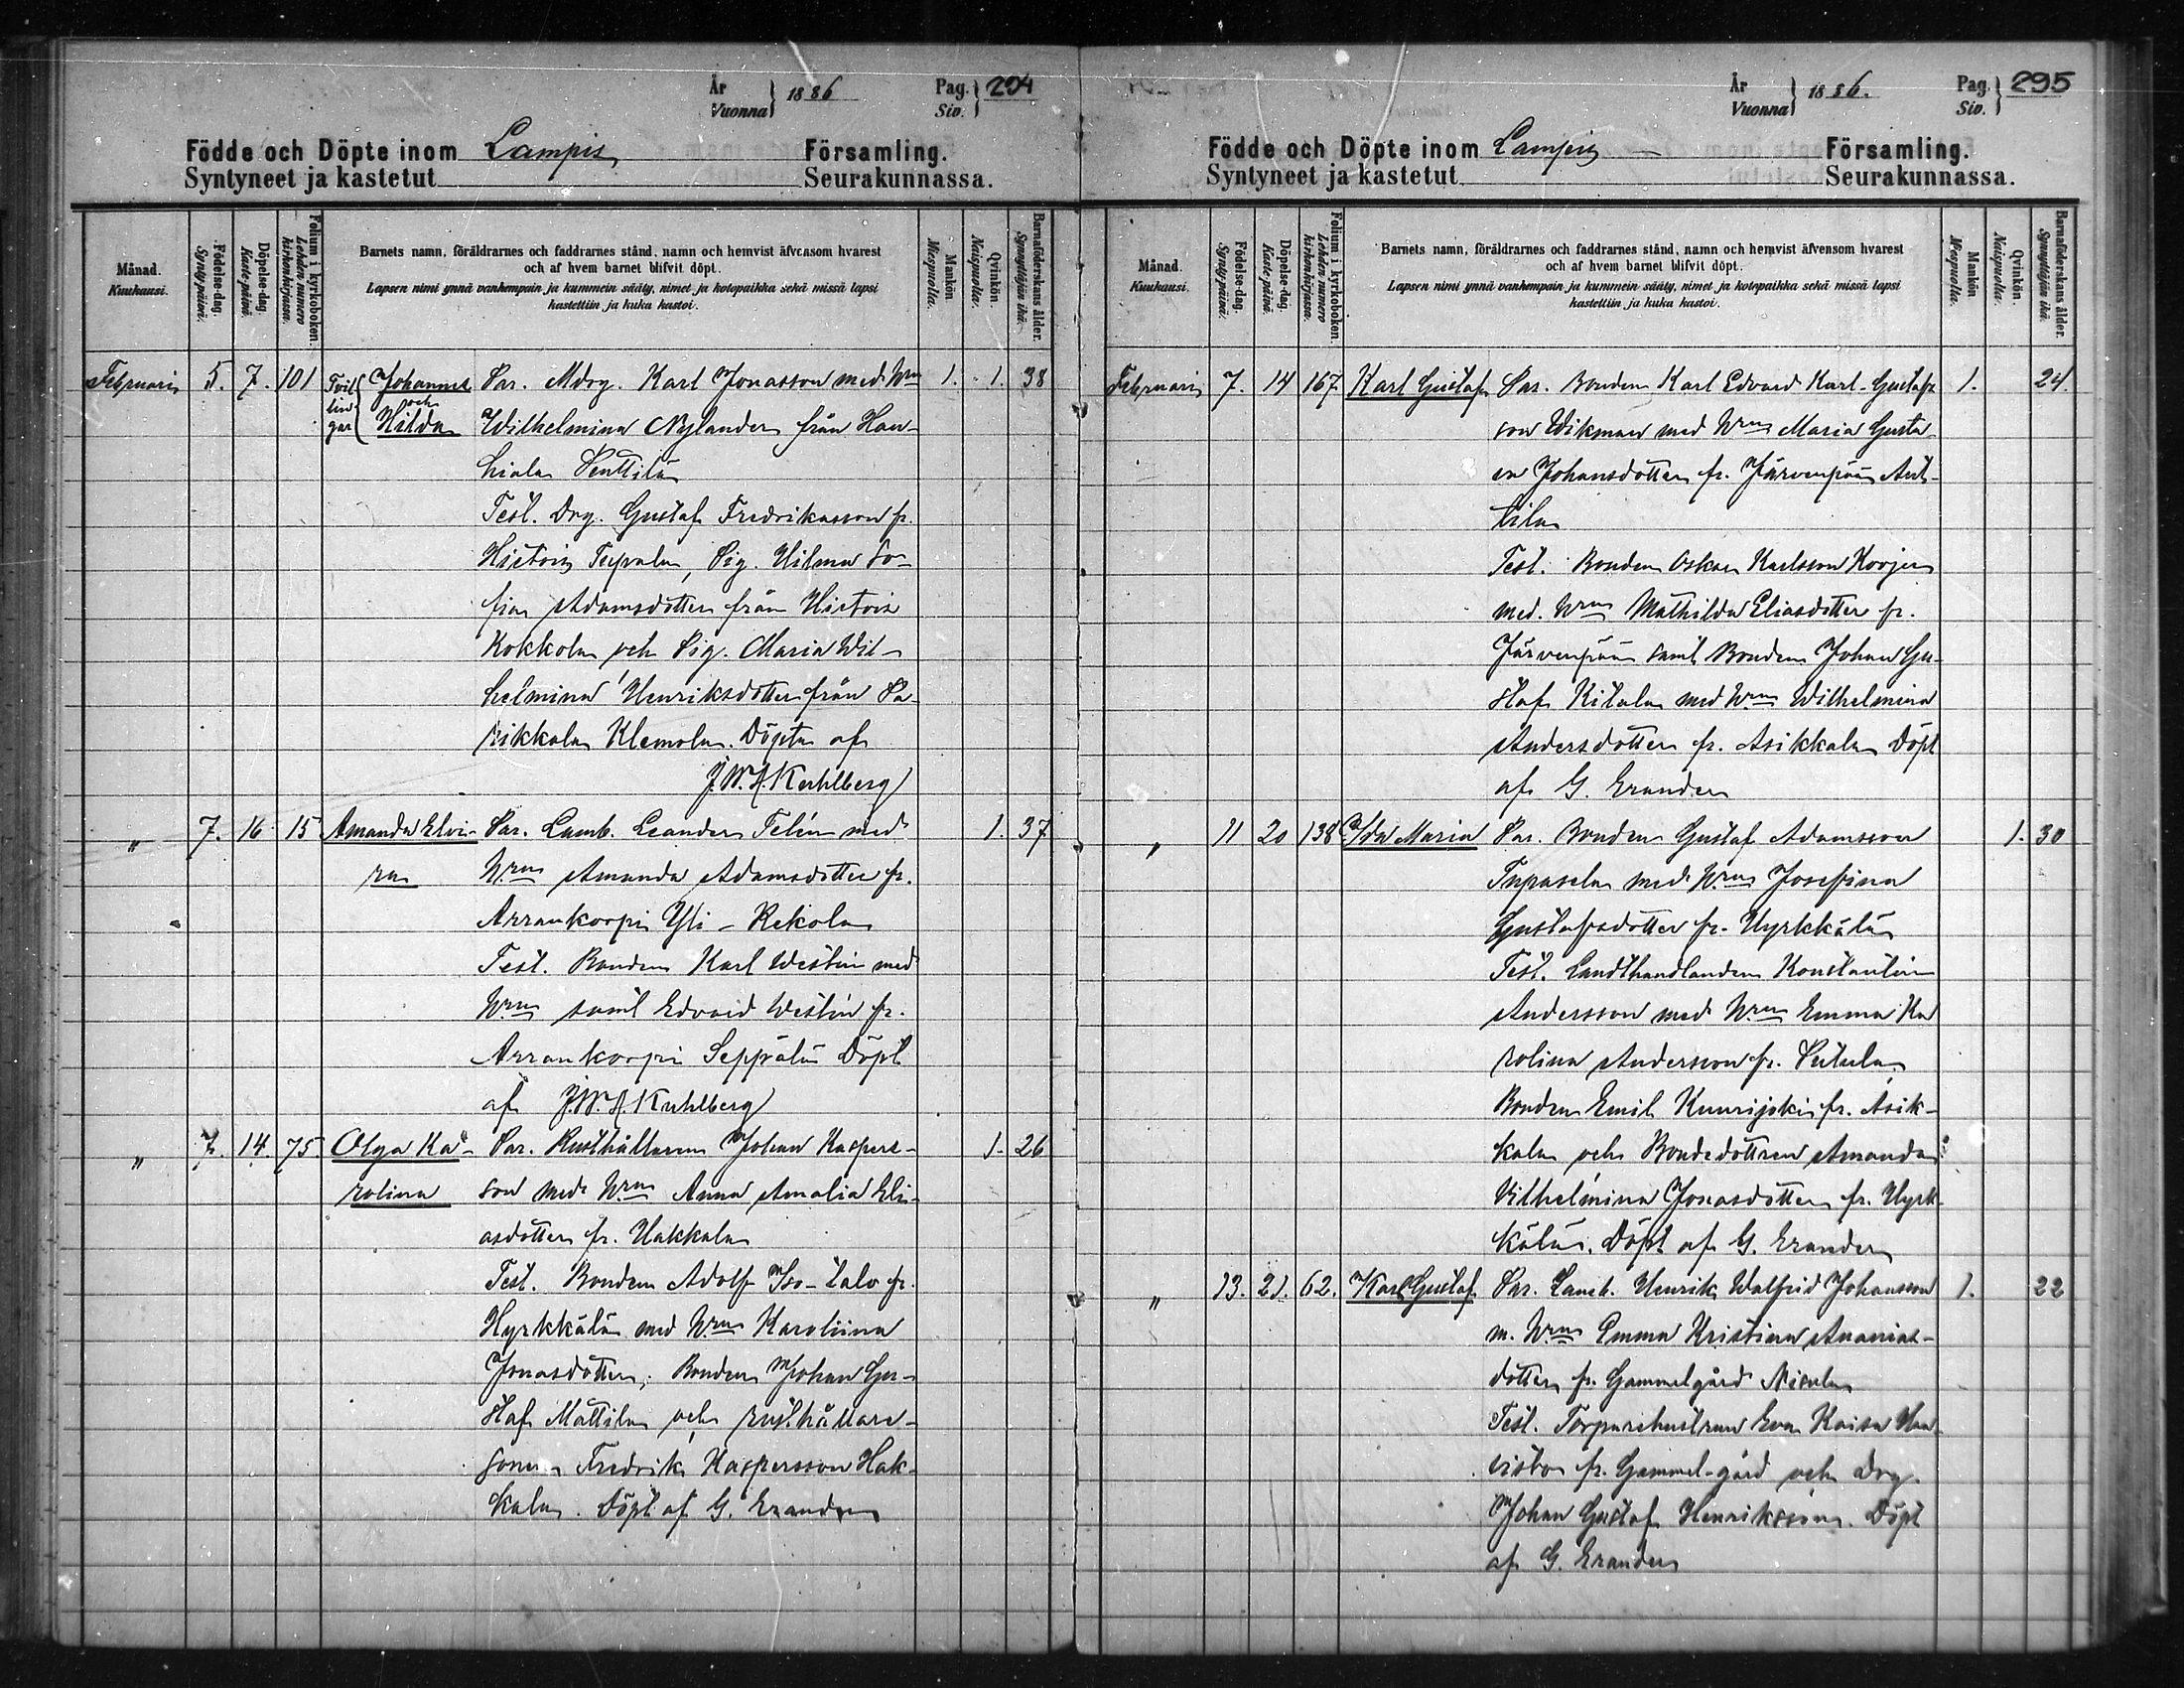 År
Vuonna
1886
Pag.
Siv.
294
Födde och Döpte inom Lampis Församling.
Syntyneet ja kastetut Seurakunnassa.
Månad.
Kuukausi.
Födelse-dag.
Synty-päivä.
Döpelse-dag.
Kaste-päivä.
Folium i kyrkoboken.
Lehden numero
kirkonkirjassa.
Barnets namn, föräldrarnes och faddrarnes stånd, namn och hemvist äfvensom hvarest
och af hvem barnet blifvit döpt.
Lapsen nimi ynnä vanhempain ja kummein sääty, nimet ja kotopaikka sekä missä lapsi
kastettiin ja kuka kastoi.
Mankön
Miespuolta.
Qvinkön.
Naispuolta.
Barnaföderskans ålder.
Synnyttäjän ikä.
Februari 5. 7. 101 Tvil Johannes Par. Mdrg. Karl Jonasson med Wm 1. 1. 38
lin och
gar Hilda Wilhelmina Nylander från Hau-
hiala Penttilä
Test. Drg. Gustaf Fredriksson fr.
Hietois Teppala, Pig. Hilma So-
fia Adamsdotter från Hietois
Kokkola och Pig. Maria Wil-
helmina Henriksdotter från Pa-
rikkala Klemola. Döpta af
J.W.A. Kuhlberg
" 7. 16 15 Amanda Elvi- Par. Lamb. Leander Telén med 1. 37
ra Wrm Amanda Adamsdotter fr.
Arrankorpi Yli-Rekola
Test. Bonden Karl Westén med
Wrm samt Edvard Westén fr.
Arrankorpi Seppälä Döpt
af J.W.A. Kuhlberg
" 7. 14. 75 Olga Ka- Par. Rusthållaren Johan Kaspers- 1. 26
rolina son med Wrm Anna Amalia Eli-
asdotter fr. Hakkala
Test. Bonden Adolf Iso-talo fr.
Hyrkkälä med Wrm Karoliina
Jonasdotter, Bonden Johan Gu-
staf Mattila och rusthållare-
sonen Fredrik Kaspersson Hak-
kala. Döpt af G. Erander
År
Vuonna
1886.
Pag.
Siv.
295
Födde och Döpte inom Lampis Församling.
Syntyneet ja kastetut Seurakunnassa.
Månad.
Kuukausi.
Födelse-dag.
Synty-päivä.
Döpelse-dag.
Kaste-päivä.
Folium i kyrkoboken.
Lehden numero
kirkonkirjassa.
Barnets namn, föräldrarnes och faddrarnes stånd, namn och hemvist äfvensom hvarest
och af hvem barnet blifvit döpt.
Lapsen nimi ynnä vanhempain ja kummein sääty, nimet ja kotopaikka sekä missä lapsi
kastettiin ja kuka kastoi.
Mankön
Miespuolta.
Qvinkön.
Naispuolta.
Barnaföderskans ålder.
Synnyttäjän ikä.
Februari 7. 14 167 Karl Gustaf Par. Bonden Karl Edvard Karl-Gustafs 1. 24.
son Wikman med Wrm Maria Gusta-
va Johansdotter fr. Järvenpää Ant-
tila
Test. Bonden Oskar Karlsson
med Wrm Mathilda Eliasdotter fr.
Järvenpää samt Bonden Johan Gu-
staf Kitala med Wrm Wilhelmina
Andersdotter fr. Asikkala Döpt
af G. Erander
" 11 20 138 Ida Maria Par. Bonden Gustaf Adamsson 1. 30
Tupasela med Wrm Josefina
Gustafsdotter fr. Hyrkkälä
Test. Landthandlanden Konstantin
Andersson med Wrm Emma Ka
rolina Andersson fr. Putula,
Bonden Emil Kuurijoki fr. Asik-
kala och Bondedottren Amanda
Vilhelmina Jonasdotter fr. Hyrk-
kälä. Döpt af G. Erander
" 13. 21. 62. Karl Gustaf Par. Lamb. Henrik Walfrid Johansson 1. 22
m. Wrm Emma Kristina Ananias-
dotter fr. Gammelgård
Test. Torparehustrun Eva Kaisa Haa-
visto fr. Gammel-gård och Drg.
Johan Gustaf Henriksson. Döpt
af G. Erander